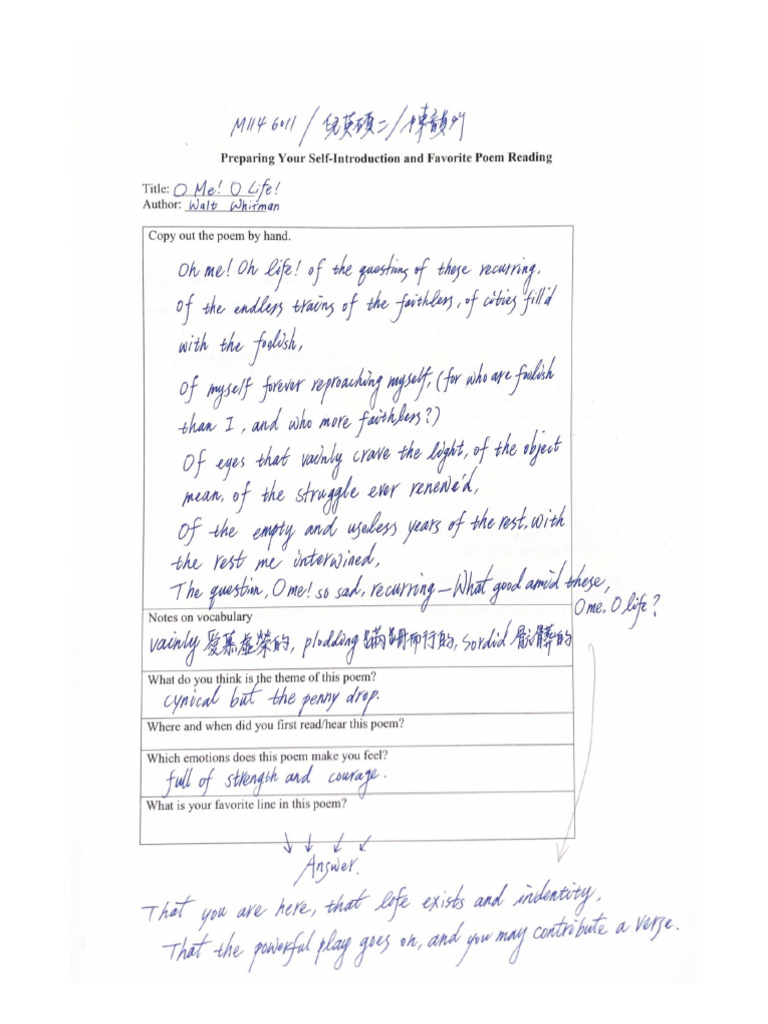 M1146011 / 倪英碩二 / 陳韻州
Preparing Your Self-Introduction and Favorite Poem Reading
Title: O Me! O Life!
Author: Walt Whitman
Copy out the poem by hand.
Oh me! Oh life! of the questions of these recurring.
Of the endless trains of the faithless, of cities fill'd
with the foolish,
Of myself forever reproaching myself, (for who are foolish
than I, and who more faithless?)
Of eyes that vainly crave the light, of the object
mean, of the struggle ever renew'd,
Of the empty and useless years of the rest, with
the rest me interwined,
The question, O me! so sad, recurring—What good amid these,
O me, O life?
Notes on vocabulary
vainly 愛慕虛榮的, plodding 蹣跚而行的, sordid 骯髒的
What do you think is the theme of this poem?
cynical but the penny drop.
Where and when did you first read/hear this poem?
Which emotions does this poem make you feel?
full of strength and courage.
What is your favorite line in this poem?
Answer.
That you are here, that life exists and indentity,
That the powerful play goes on, and you may contribute a verse.